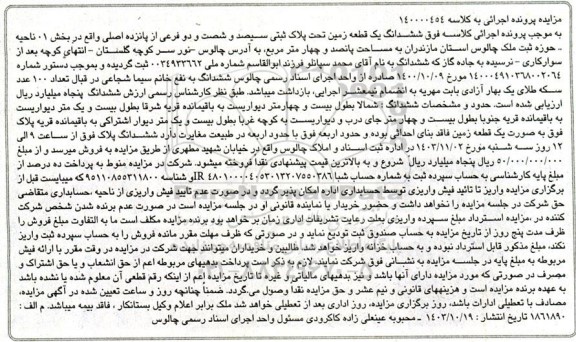 مزایده پرونده اجرائی به کلاسه ۱۴۰۰۰۰۴۵۴
به موجب پرونده اجرائی کلاسه فوق ششدانگ یک قطعه زمین تحت پلاک ثبتی سیصد و شصت و دو فرعی از پانزده اصلی واقع در بخش ۰۱ ناحیه
- حوزه ثبت ملک چالوس استان مازندران به مساحت پانصد و چهار متر مربع، به آدرس چالوس -نور سر کوچه گلستان - انتهای کوچه بعد از
سوارکاری - نرسیده به جاده گاز که ششدانگ به نام آقای محمد سپانلو فرزند ابوالقاسم شماره ملی ۰۰۳۴۹۳۳۶۶۲ ثبت گردیده و بموجب دستور شماره
۱۴۰۰۰۴۹۱۰۳۶۸۰۰۲۰۶۴ مورخ ۱۴۰۰/۱۰/۰۹ صادره از واحد اجرای اسناد رسمی چالوس ششدانگ به نفع خانم سیما شجاعی در قبال تعداد ۱۰۰ عدد
سکه طلای یک بهار آزادی بابت مهریه به انضمام نیم عشر اجرایی، بازداشت میباشد. طبق نظر کارشناس رسمی ارزش ششدانگ پنجاه میلیارد ریال
ارزیابی شده است. حدود و مشخصات ششدانگ : شمالا بطول بیست و چهارمتر دیواریست به باقیمانده قریه شرقا بطول بیست و یک متر دیواریست
به باقیمانده قریه جنوبا بطول بیست و چهار متر جای درب و دیواریست به کوچه غربا بطول بیست و یک متر دیوار اشتراکی به باقیمانده قریه پلاک
فوق به صورت یک قطعه زمین فاقد بنای احداثی بوده و حدود اربعه فوق با حدود اربعه در طبیعت مغایرت دارد ششدانگ پلاک فوق از ساعت ۹ الی
۱۲ روز سه شنبه مورخ ۱۴۰۳/۱۱/۰۲ در اداره ثبت اسناد و املاک چالوس واقع در خیابان شهید مطهری از طریق مزایده به فروش میرسد و از مبلغ
۵۰/۰۰۰/۰۰۰/۰۰۰ ریال پنجاه میلیارد ریال شروع و به بالاترین قیمت پیشنهادی نقدا فروخته میشود. شرکت در مزایده منوط به پرداخت ده درصد از
مبلغ پایه کارشناسی به حساب سپرده ثبت به شماره حساب شبا IR ۴۸۰۱۰۰۰۰۴۰۵۳۰۱۳۲۰۷۵۵۰۳۸۶ و شناسه ۹۵۱۱۰۸۵۵۳۱۱۸۰۰ که میبایست قبل از
برگزاری مزایده واریز تا تائید فیش واریزی توسط حسابداری اداره امکان پذیر گردد و در صورت عدم تایید فیش واریزی از ناحیه ،حسابداری متقاضی
حق شرکت در جلسه مزایده را نخواهد داشت و حضور خریدار یا نماینده قانونی او در جلسه مزایده است در صورت عدم برنده شدن شخص شرکت
کننده در ،مزایده استرداد مبلغ سپرده واریزی بعلت رعایت تشریفات اداری زمان بر خواهد بود برنده مزایده مکلف است ما به التفاوت مبلغ فروش را
ظرف مدت پنج روز از تاریخ مزایده به حساب صندوق ثبت تودیع نماید و در صورتی که ظرف مهلت مقرر مانده فروش را به حساب سپرده ثبت واریز
نکند، مبلغ مذکور قابل استرداد نبوده و به حساب خزانه واریز خواهد شد. طالبین و خریداران میتوانند جهت شرکت در مزایده در وقت مقرر با ارائه فیش
مربوطه به مبلغ پایه در جلسه مزایده به نشانی فوق شرکت نمایند. لازم به ذکر است پرداخت بدهیهای مربوطه اعم از حق انشعاب و یا حق اشتراک و
مصرف در صورتی که مورد مزایده دارای آنها باشد و نیز بدهیهای مالیاتی و غیره تا تاریخ مزایده اعم از اینکه رقم قطعی آن معلوم شده یا نشده باشد
به عهده برنده مزایده است و هزینههای قانونی و نیم عشر و حق مزایده نقدا وصول می‌گردد. ضمناً چنانچه روز و ساعت تعیین شده در آگهی مزایده،
مصادف با تعطیلی ادارات باشد، روز برگزاری مزایده، روز اداری بعد از تعطیلی خواهد شد ملک برابر اعلام وکیل بستانکار ، فاقد بیمه میباشد. م الف :
۱۸۶۱۸۹۰ تاریخ انتشار : ۱۴۰۳/۱۰/۱۹ - محبوبه عینعلی زاده کاکرودی مسئول واحد اجرای اسناد رسمی چالوس